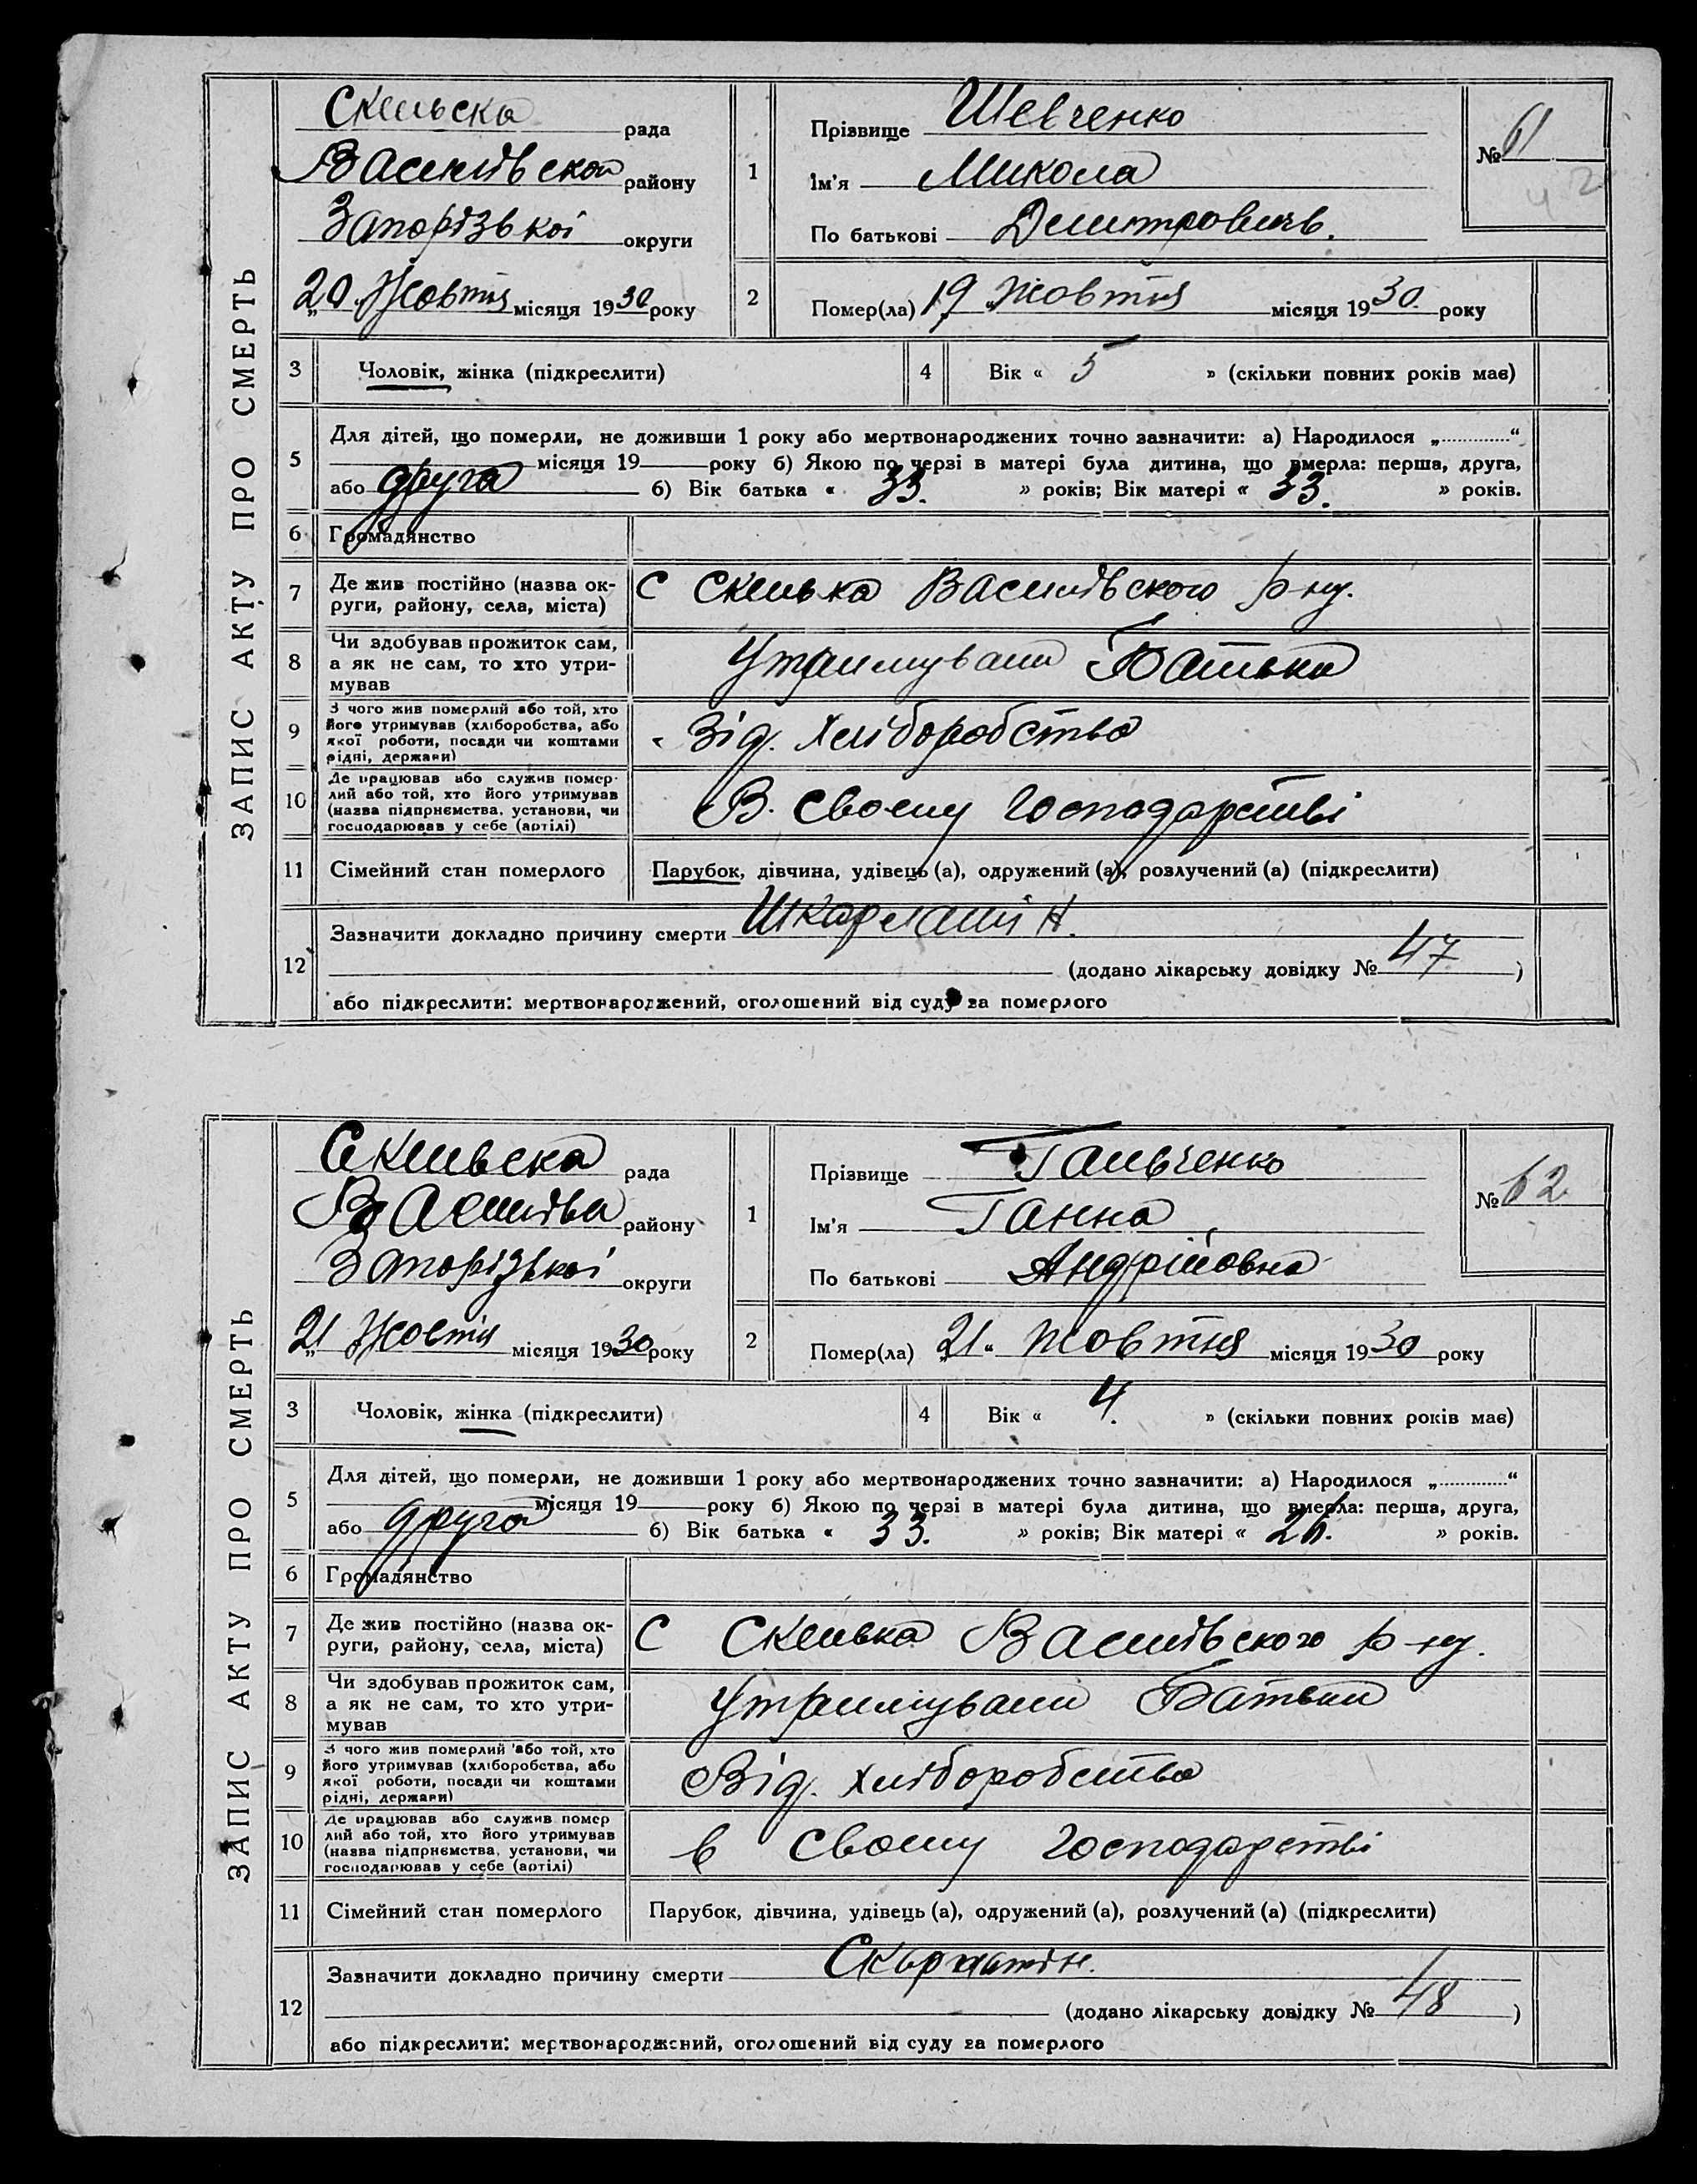 ЗАПИС АКТУ ПРО СМЕРТЬ
Скельска рада
Василівскоі району
Запорізькоі округи
„20 Жовтня місяця 1930 року
1
Прізвище Шевченко
Ім'я Микола
По батькові Дмитровичь.
№ 61
42
2
Помер(ла) 19 Жовтня місяця 1930. року
3 Чоловік, жінка (підкреслити)
4 Вік « 5 » (скільки повних років має)
5
Для дітей, що померли, не доживши 1 року або мертвонароджених точно зазначити: а) Народилося „.............“
місяця 19 року б) Якою по черзі в матері була дитина, що вмерла: перша, друга,
або друга б) Вік батька « 33. » років; Вік матері « 33. » років.
6 Громадянство
7 Де жив постійно (назва ок-
руги, району, села, міста)
С Скелька Василівского р-ну.
8 Чи здобував прожиток сам,
а як не сам, то хто утри-
мував
Утримували Батьки
9 З чого жив померлий або той, хто
його утримував (хліборобства, або
якої роботи, посади чи коштами
рідні, держави)
Від. хліборобства
10 Де працював або служив помер-
лий або той, хто його утримував
(назва підприємства, установи, чи
господарював у себе (артілі)
В. своему господарстві
11 Сімейний стан померлого
Парубок, дівчина, удівець (а), одружений (а), розлучений (а) (підкреслити)
12
Зазначити докладно причину смерти Шкарлатін.
(додано лікарську довідку № 47 )
або підкреслити: мертвонароджений, оголошений від суду за померлого
ЗАПИС АКТУ ПРО СМЕРТЬ
Скельвска рада
району
Запорізькоі округи
„21 Жовтня місяця 1930 року
1
Прізвище Гальченко
Ім'я Ганна
По батькові Андрійовна
№ 62.
2
Помер(ла) „21“ Жовтня місяця 1930 року
3 Чоловік, жінка (підкреслити)
4 Вік « 4. » (скільки повних років має)
5
Для дітей, що померли, не доживши 1 року або мертвонароджених точно зазначити: а) Народилося „.............“
місяця 19 року б) Якою по черзі в матері була дитина, що вмерла: перша, друга,
або друга б) Вік батька « 33. » років; Вік матері « 26. » років.
6 Громадянство
7 Де жив постійно (назва ок-
руги, району, села, міста)
С Скелька Василівского р-ну.
8 Чи здобував прожиток сам,
а як не сам, то хто утри-
мував
Утримували Батьки
9 З чого жив померлий або той, хто
його утримував (хліборобства, або
якої роботи, посади чи коштами
рідні, держави)
Від. хліборобства
10 Де працював або служив помер
лий або той, хто його утримував
(назва підприємства, установи, чи
господарював у себе (артілі)
в своему господарстві
11 Сімейний стан померлого
Парубок, дівчина, удівець (а), одружений (а), розлучений (а) (підкреслити)
12
Зазначити докладно причину смерти Скарлатін.
(додано лікарську довідку № 48 )
або підкреслити: мертвонароджений, оголошений від суду за померлого